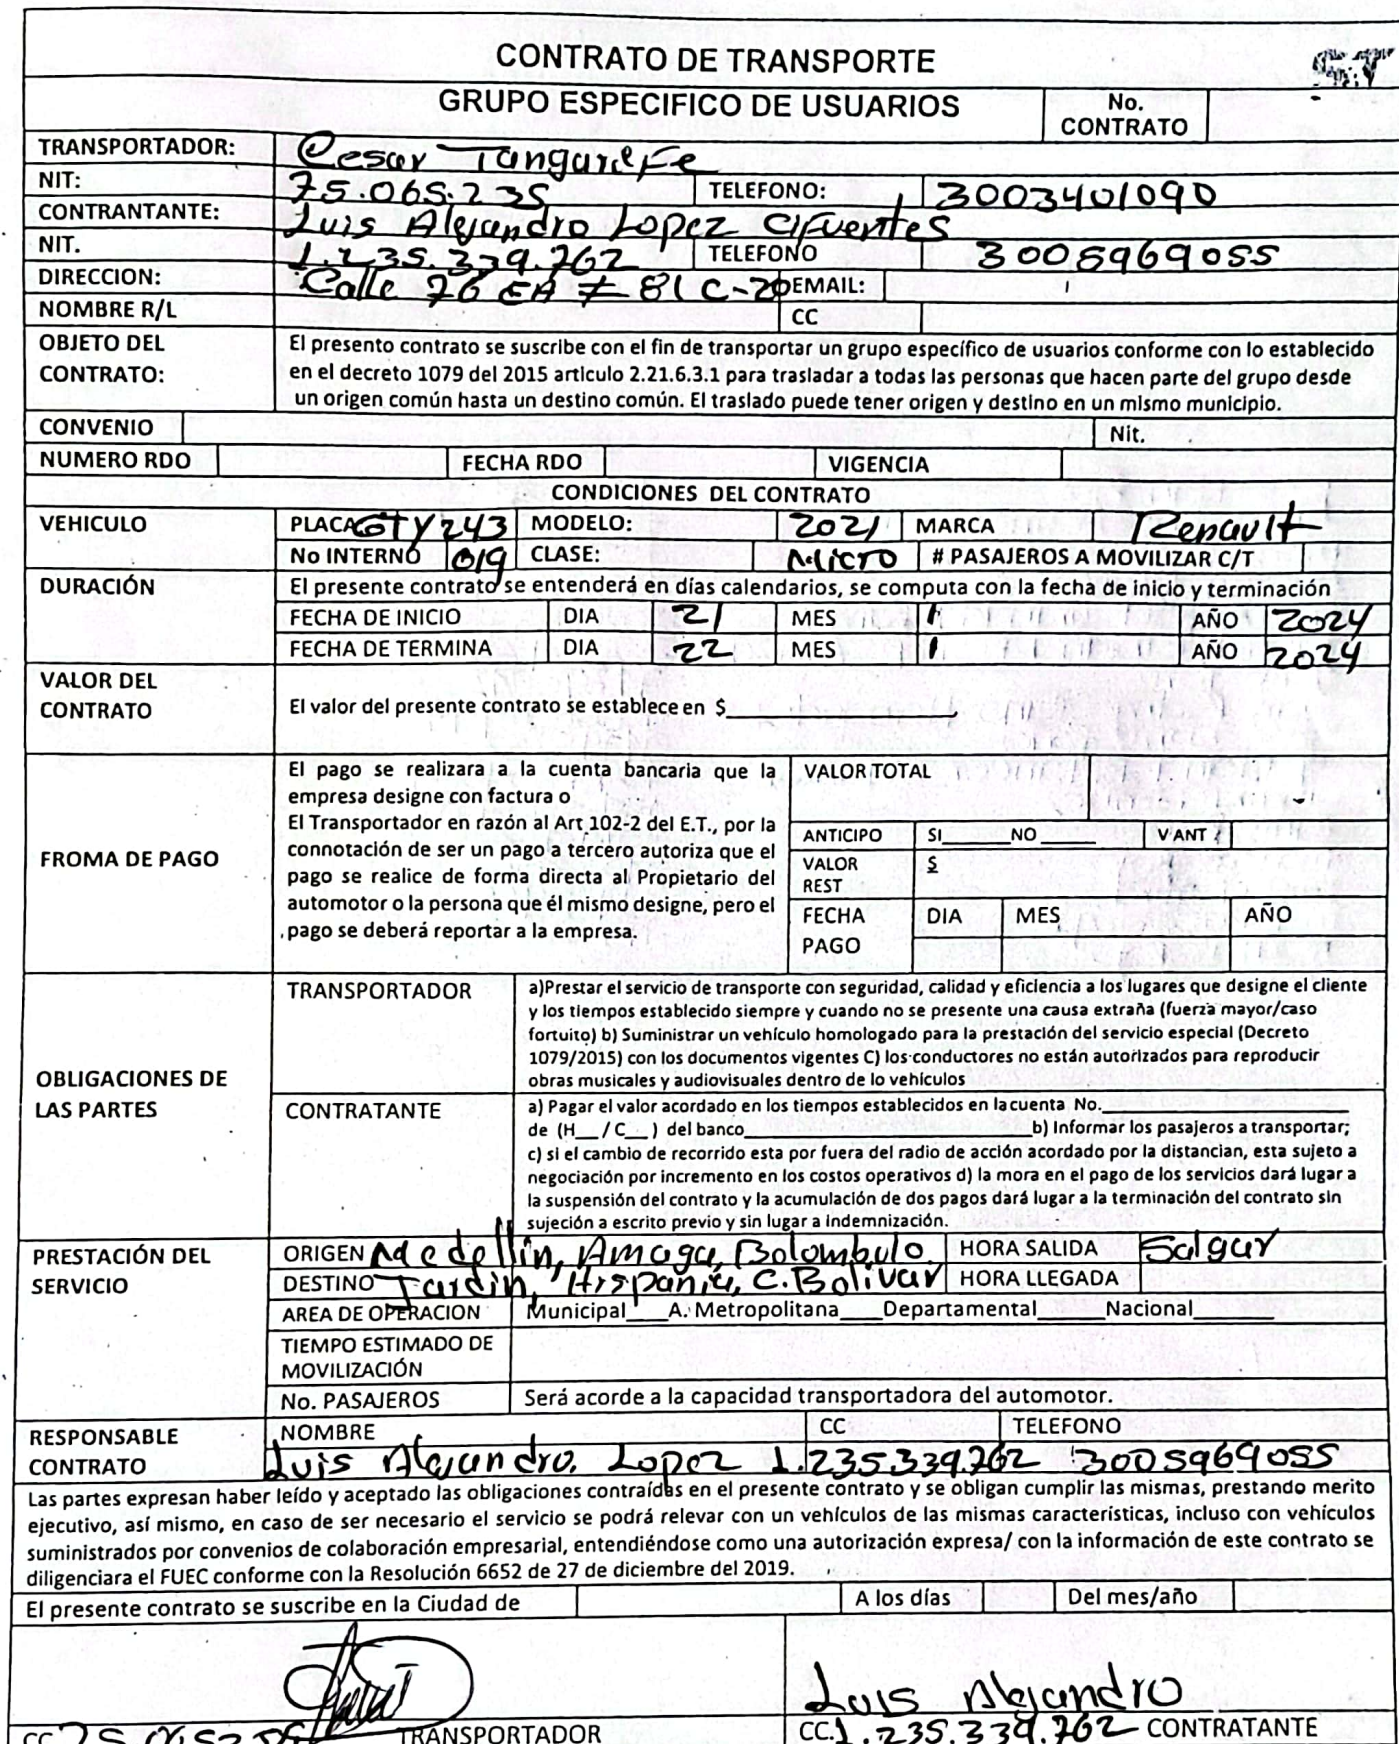 CONTRATO DE TRANSPORTE
GRUPO ESPECIFICO DE USUARIOS No. CONTRATO
TRANSPORTADOR: Cesar Tangarife
NIT: 75.065.235 TELEFONO: 3003401090
CONTRANTANTE: Luis Alejandro Lopez Cifuentes
NIT. 1.235.339.762 TELEFONO 3005969055
DIRECCION: Calle 76 EA # 81 C-20 EMAIL:
NOMBRE R/L CC
OBJETO DEL CONTRATO:
El presento contrato se suscribe con el fin de transportar un grupo específico de usuarios conforme con lo establecido
en el decreto 1079 del 2015 articulo 2.21.6.3.1 para trasladar a todas las personas que hacen parte del grupo desde
un origen común hasta un destino común. El traslado puede tener origen y destino en un mismo municipio.
CONVENIO Nit.
NUMERO RDO FECHA RDO VIGENCIA
CONDICIONES DEL CONTRATO
VEHICULO PLACA GTY243 MODELO: 2021 MARCA Renault
No INTERNO 019 CLASE: Micro # PASAJEROS A MOVILIZAR C/T
DURACIÓN El presente contrato se entenderá en días calendarios, se computa con la fecha de inicio y terminación
FECHA DE INICIO DIA 21 MES 1 AÑO 2024
FECHA DE TERMINA DIA 22 MES 1 AÑO 2024
VALOR DEL CONTRATO
El valor del presente contrato se establece en $
FROMA DE PAGO
El pago se realizara a la cuenta bancaria que la
empresa designe con factura o
El Transportador en razón al Art 102-2 del E.T., por la
connotación de ser un pago a tercero autoriza que el
pago se realice de forma directa al Propietario del
automotor o la persona que él mismo designe, pero el
pago se deberá reportar a la empresa.
VALOR TOTAL
ANTICIPO SI______NO______ V ANT
VALOR REST $
FECHA PAGO DIA MES AÑO
OBLIGACIONES DE LAS PARTES
TRANSPORTADOR
a)Prestar el servicio de transporte con seguridad, calidad y eficiencia a los lugares que designe el cliente
y los tiempos establecido siempre y cuando no se presente una causa extraña (fuerza mayor/caso
fortuito) b) Suministrar un vehículo homologado para la prestación del servicio especial (Decreto
1079/2015) con los documentos vigentes C) los conductores no están autorizados para reproducir
obras musicales y audiovisuales dentro de lo vehículos
CONTRATANTE
a) Pagar el valor acordado en los tiempos establecidos en lacuenta No.______
de (H__/C__) del banco______b) Informar los pasajeros a transportar;
c) si el cambio de recorrido esta por fuera del radio de acción acordado por la distancian, esta sujeto a
negociación por incremento en los costos operativos d) la mora en el pago de los servicios dará lugar a
la suspensión del contrato y la acumulación de dos pagos dará lugar a la terminación del contrato sin
sujeción a escrito previo y sin lugar a indemnización.
PRESTACIÓN DEL SERVICIO
ORIGEN Medellin, Amaga, Bolombolo HORA SALIDA Salgar
DESTINO Jardin, Hispania, C. Bolivar HORA LLEGADA
AREA DE OPERACION Municipal___A. Metropolitana___Departamental_____Nacional______
TIEMPO ESTIMADO DE MOVILIZACIÓN
No. PASAJEROS Será acorde a la capacidad transportadora del automotor.
RESPONSABLE CONTRATO
NOMBRE CC TELEFONO
Luis Alejandro. Lopez 1.235.339.762 3005969055
Las partes expresan haber leído y aceptado las obligaciones contraídas en el presente contrato y se obligan cumplir las mismas, prestando merito
ejecutivo, así mismo, en caso de ser necesario el servicio se podrá relevar con un vehículos de las mismas características, incluso con vehículos
suministrados por convenios de colaboración empresarial, entendiéndose como una autorización expresa/ con la información de este contrato se
diligenciara el FUEC conforme con la Resolución 6652 de 27 de diciembre del 2019.
El presente contrato se suscribe en la Ciudad de A los días Del mes/año
Luis Alejandro
CC TRANSPORTADOR CC. 1.235.339.762 CONTRATANTE